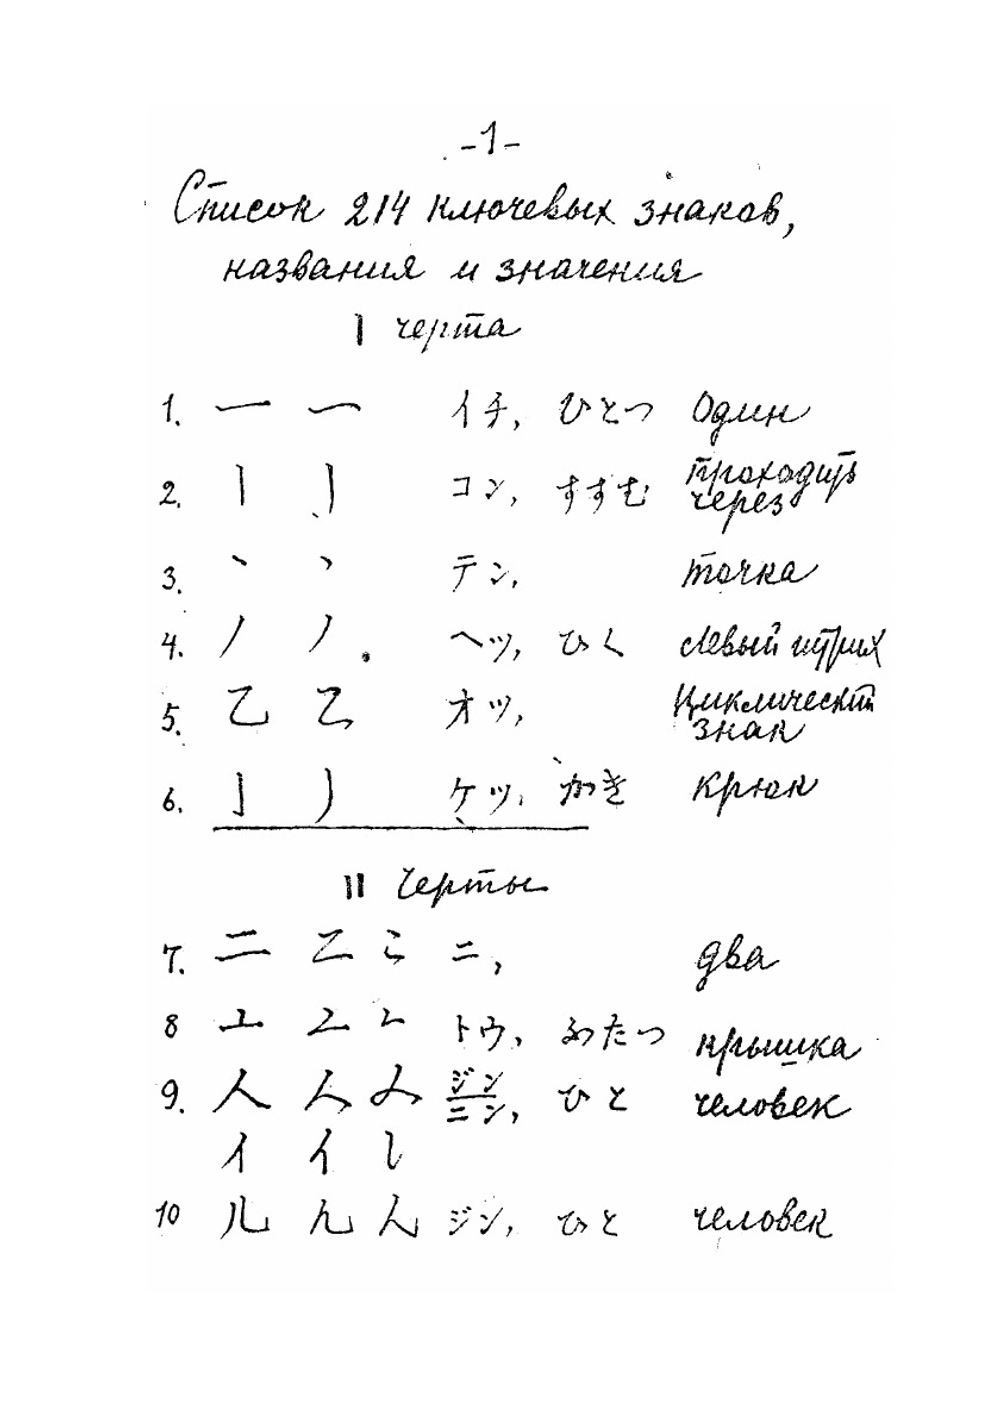 -1-
Список 214 ключевых знаков,
названия и значения
I черта
1. 一 一 イチ, ひとつ один
2. 丨 丨 コン, すすむ проходить через
3. 丶 丶 テン, точка
4. 丿 丿 ヘツ, ひく левый штрих
5. 乙 乙 オツ, циклический знак
6. 亅 亅 ケツ, かぎ крюк
II Черты
7. 二 二 こ ニ, два
8 亠 亠 亠 トウ, ふたつ крышка
9. 人 人 み ジン ニン, ひと человек
亻 亻 し
10 儿 儿 ん ジン, ひと человек